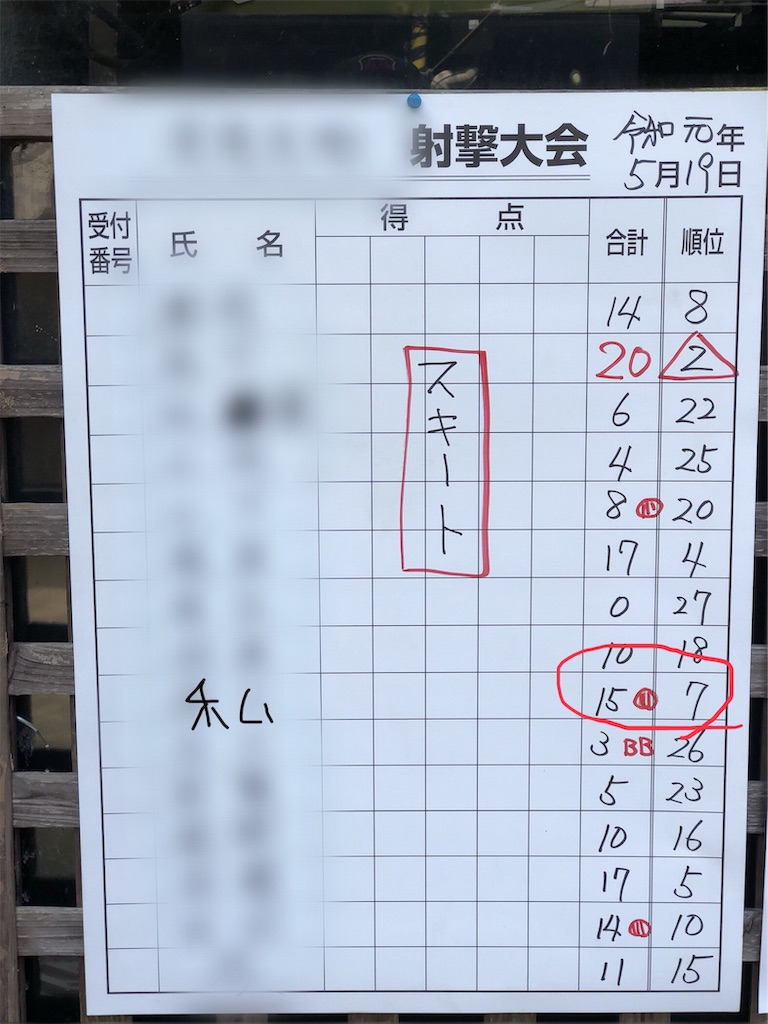 射撃大会
令和元年
5月19日
受付番号 氏名 得点 合計 順位
14 8
20 2
6 22
4 25
8 小 20
17 4
0 27
10 18
私 15 7
3 BB 26
5 23
10 16
17 5
14 10
11 15
スキート